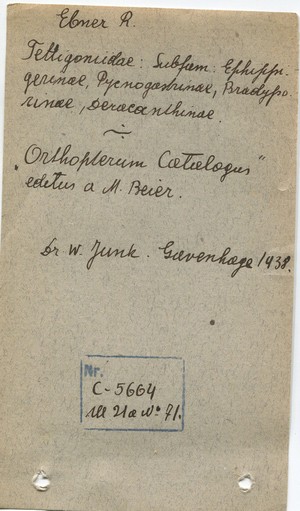 Ebner R.
Tettigoniidae: Subfam: Ephippi-
gerinae, Pycnogastrinae, Bradypo-
rinae, Deracanthinae.
"Orthopterum Catalogus"
editus a M. Beier.
Dr. W. Junk. Gravenhage 1938.
Nr.
C-5664
21a No 71.